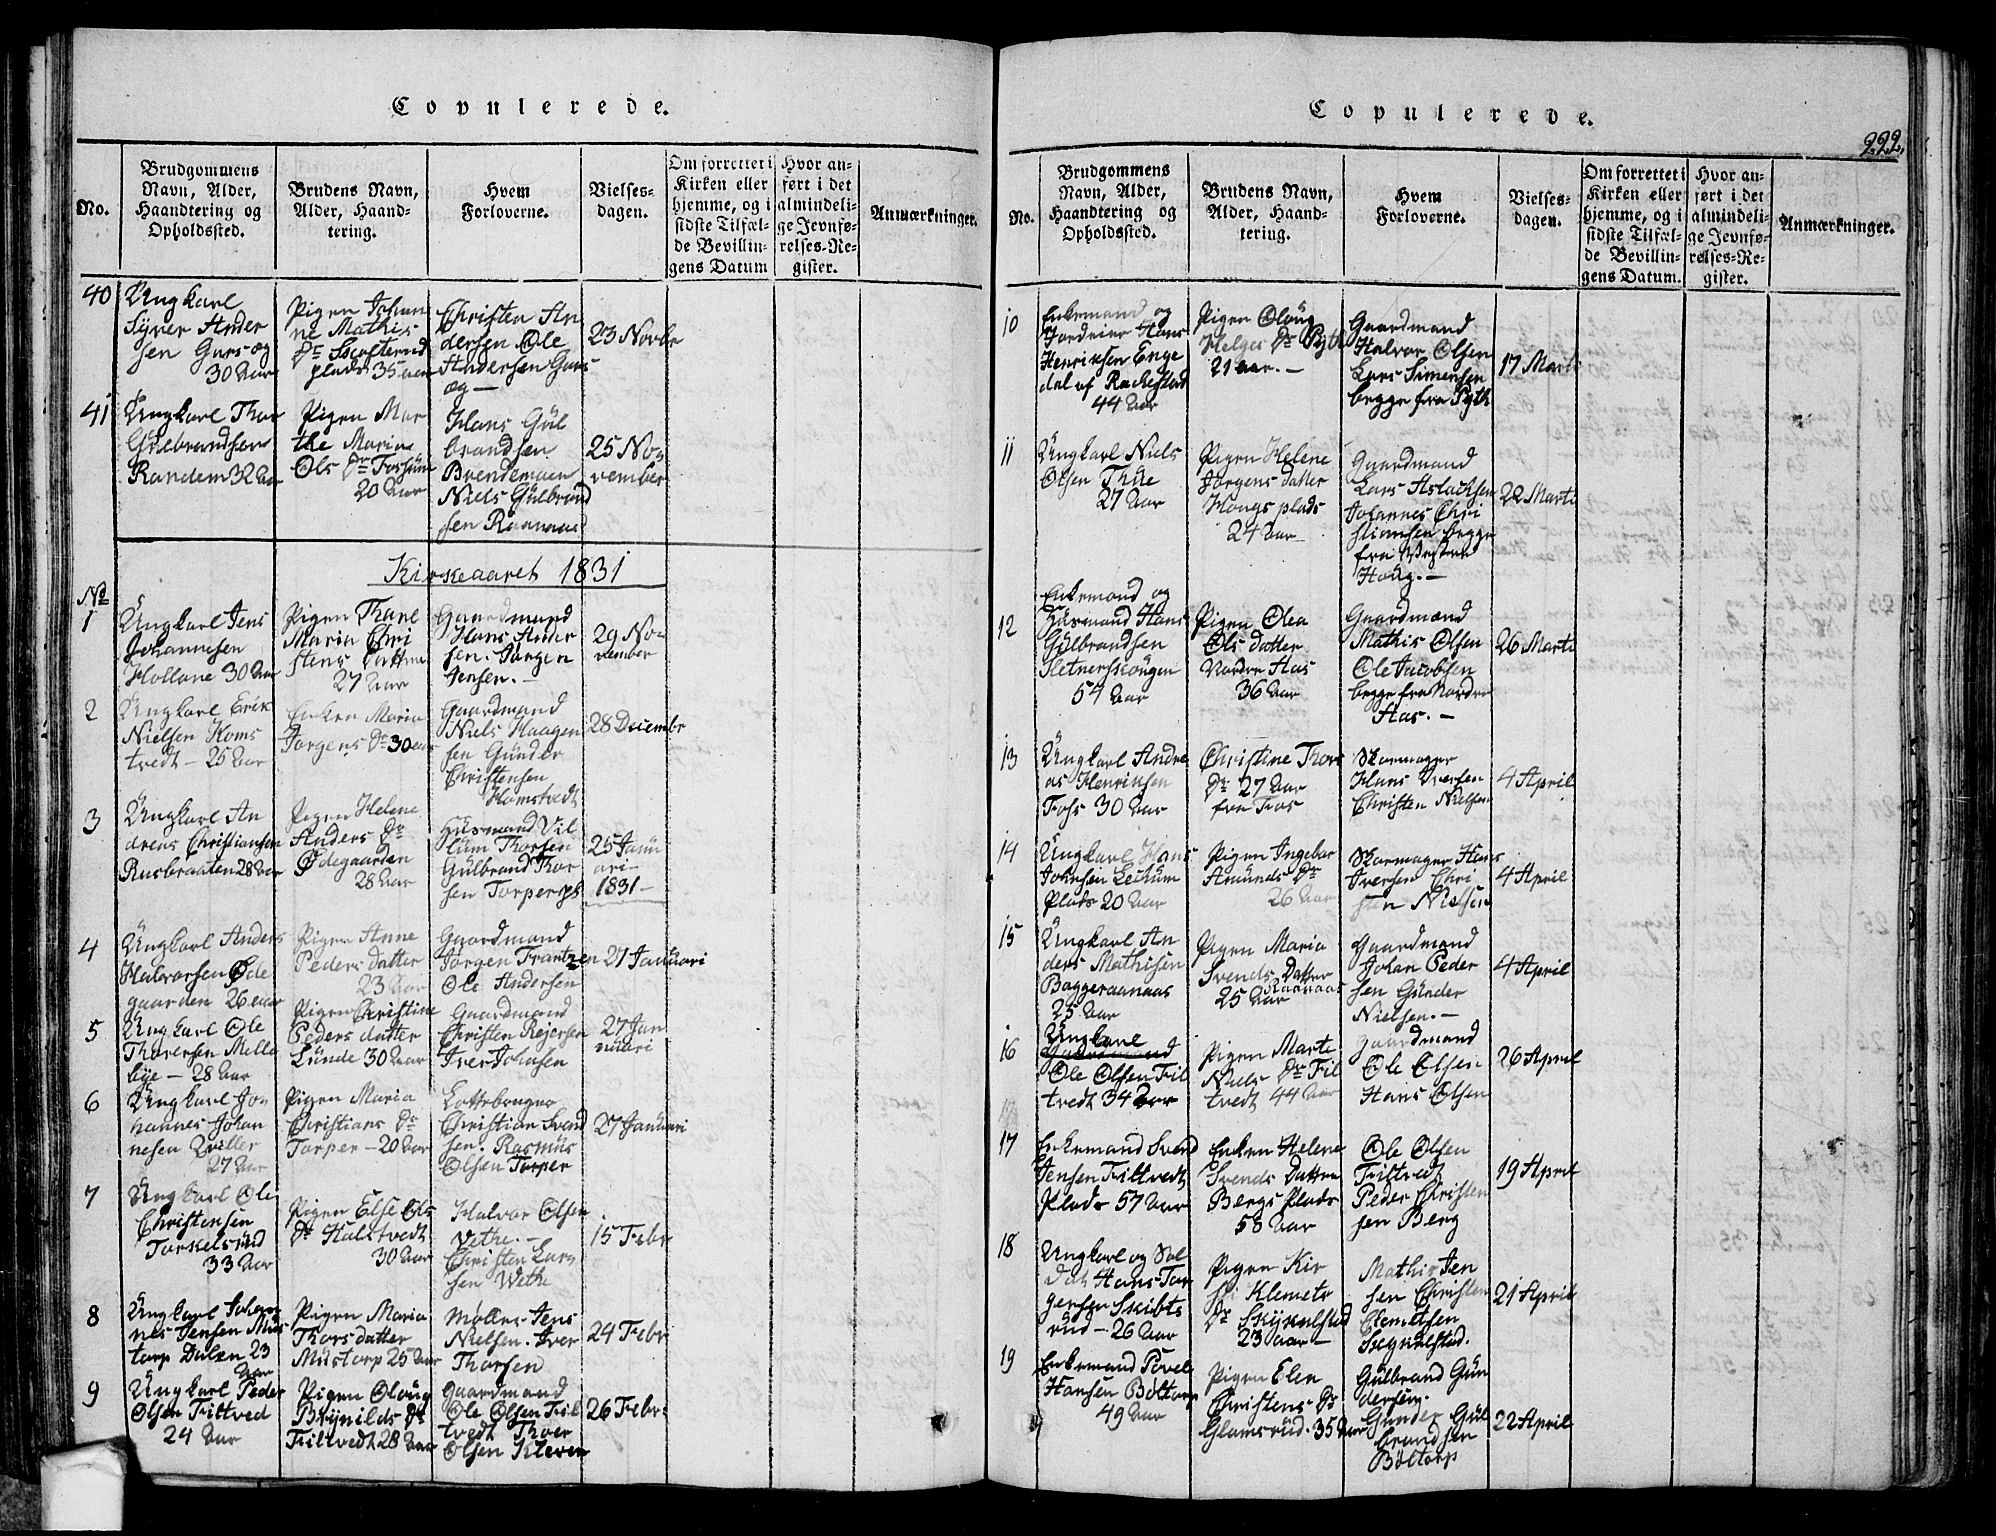 Copulerede.
No.
Brudgommens
Navn, Alder,
Haandtering og
Opholdssted.
Brudens Navn,
Alder, Haand-
tering.
Hvem
Forloverne.
Vielses-
dagen.
Om forrettet i
Kirken eller
hjemme, og i
sidste Tilfæl-
de Bevillin-
gens Datum
Hvor an-
ført i det
almindeli-
ge Jevnfø-
relses-Re-
gister.
Anmærkninger.
40
Ungkarl
Syver Ander
sen Gars og
30 Aar
Pigen Johan
ne Mathis
Dr
plads 35 aar
Christen An
dersen Ole
Andersen Gars
og —
23 Novbr
41
Ungkarl Thor
Gulbrandsen
Randem 32 Aar
Pigen Mar
the Maria
Ols Dr Fossum
20 Aar
Hans Gul
brandsen
Brendemoen
Niels Gulbrand
sen Raanaas
25 No
vember
Kirkeaaret 1831
No
1
Ungkarl Jens
Johannesen
Hollane 30 Aar
Pigen Thale
Maria Chri
stens Datter
27 Aar
Gaardmand
Hans Ander
sen. Jørgen
Jensen. —
29 No
vember
2
Ungkarl Erik
Nielsen Homs
tvedt — 25 Aar
Enken Maria
Jørgens Dr 30 aar
Gaardmand
Niels Haagen
sen Gunder
Christensen
Homstvedt
28 Decembr
3
Ungkarl An
dreas Christiansen
Rusbraaten 28 Aar
Pigen Helene
Anders Dr
Ødegaarden
28 Aar
Husmand Vil
lum Thorsen
Gulbrand Thor
sen Torperps
25 Janu
ari —
1831 —
4
Ungkarl Anders
Halvorsen Øde
gaarden 26 aar
Pigen Anne
Peders datter
23 Aar
Gaardmand
Jørgen Frantzen
Ole Andersen
27 Januari
5
Ungkarl Ole
Thoresen Melle
bye — 28 Aar
Pigen Christine
Peders datter
Lunde 30 Aar
Gaardmand
Christen Reiersen
Iver Johnsen
27 Jan
nuari
6
Ungkarl Jo
hannes Johan
nesen Qviller
27 Aar
Pigen Maria
Christians Dr
Torper — 20 Aar
Lottebruger
Christian Svend
sen. Rasmus
Olsen Torper
27 Januari
7
Ungkarl Ole
Christensen
Torkelsrud
33 Aar
Pigen Else Ols
Dr Holstvedt
30 Aar
Halvor Olsen
Vethe. —
Christen Lar
sen Wethe
15 Febr
8
Ungkarl Johan
nes Jensen Mus
torp Dalen 23
Aar
Pigen Maria
Thorsdatter
Mustorp 25 Aar
Møller Jens
Nielsen. Iver
Thorsen
24 Febr
9
Ungkarl Peder
Olsen Filtved
24 Aar
Pigen Oloug
Brynilds Dr
Filtvedt 28 Aar
Gaardmand
Ole Olsen Fil
tvedt Thoer
Olsen Kleven
26 Febr
Copulerede.
222.
No.
Brudgommens
Navn, Alder,
Haandtering og
Opholdssted.
Brudens Navn,
Alder, Haand-
tering.
Hvem
Forloverne.
Vielses-
dagen.
Om forrettet i
Kirken eller
hjemme, og i
sidste Tilfæl-
de Bevillin-
gens Datum.
Hvor an-
ført i det
almindeli-
ge Jevnfø-
relses-Re-
gister.
Anmærkninger.
10
Enkemand og
Jordeier Hans
Henriksen Enge
dal af Rackestad
44 Aar
Pigen Oloug
Helges Dr Pyth
21 aar. —
Gaardmand
Halvor Olsen
Lars Simensen
begge fra Pyth
17 Marti
11
Ungkarl Niels
Olsen Thue
27 Aar
Pigen Helene
Jørgens datter
Hougs plads
24 Aar —
Gaardmand
Lars Aslachsen
Johannes Chri
stiansen begge
fra Vestre
Houg. —
22 Marti
12
Enkemand og
Husmand Hans
Gulbrandsen
Sletnerskougen
54 Aar
Pigen Olea
Ols datter
Nordre Aas
36 Aar
Gaardmand
Mathis Olsen
Ole Jacobsen
begge fra Nordre
Aas. —
26 Marti
13
Ungkarl Andre
as Henriksen
Foss 30 Aar
Christine Thors
Dr 27 Aar
fra Fos
Skomager
Hans Iversen
Christen Nielsen
4 April
14
Ungkarl Hans
Johnsen Leckum
Plads 20 Aar
Pigen Ingebor
Amunds Dr
26 Aar
Skomager Hans
Iversen Chri
sten Nielsen
4 April
15
Ungkarl An
ders Mathisen
Baggeraanaas
25 Aar
Pigen Maria
Svends Datter
25 Aar Raanaas
Gaardmand
Johan Peder
sen Gunder
Nielsen. —
4 April
16
Ungkarl
Ole Olsen Fil
tvedt 34 Aar
Pigen Marte
Niels Dr Fil
tvedt 44 Aar
Gaardmand
Ole Olsen
Hans Olsen
26 April
17
Enkemand Svend
Jensen Filtvedt
Plads 57 Aar
Enken Helene
Svends Datter
Bergs Plads
58 Aar
Ole Olsen
Filtvedt
Peder Christen
sen Berg
19 April
18
Ungkarl og Sol
dat Hans Tor
gersen Skibts
rud — 26 Aar
Pigen Kir
sti Klemets
Dr Skykulstad
23 aar —
Mathis Jen
sen Christen
Clemetsen
Skykulstad.
21 April
19
Enkemand Povel
Hansen Boltorp
49 Aar
Pigen Elen
Christens Dr
Glomsrud. 35 Aar
Gulbrand Gun
dersen.
Gunder Gul
brandsen
Bøltorp
22 April